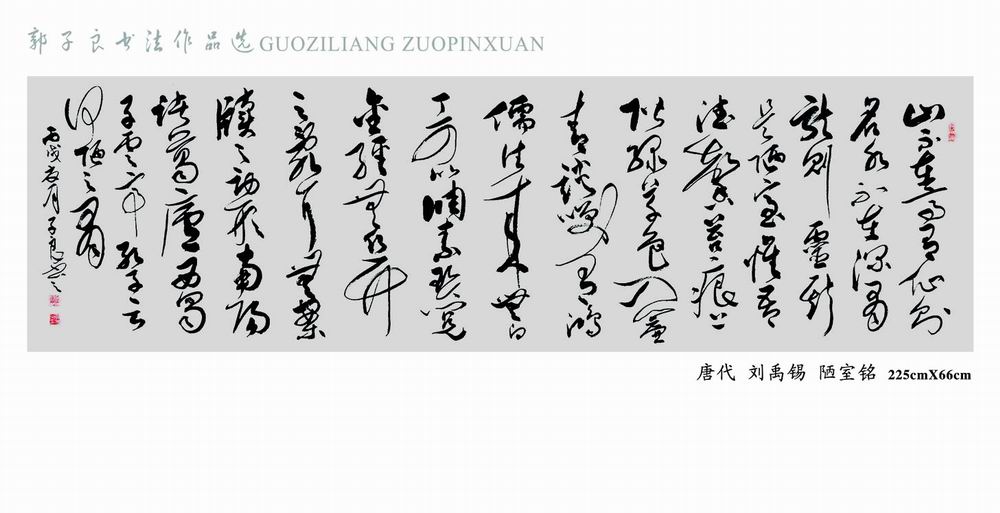 郭子良书法作品选 GUOZILIANG ZUOPINXUAN
山不在高有仙則
名水不在深有
龍則靈斯
是陋室惟吾
德馨苔痕上
階綠草色入簾
青談笑有鴻
儒往來無白
丁可以調素琴閱
金經無絲竹
之亂耳無案
牘之勞形南陽
諸葛廬西蜀
子雲亭孔子云
何陋之有
丙戌 月子良書
唐代 刘禹锡 陋室铭 225cmX66cm